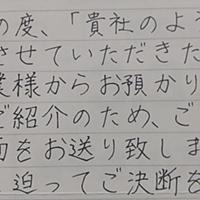 の度、「貴社のよう
させていただきた
業様からお預かり
ご紹介のため、ご
面をお送り致しま
迫ってご決断を